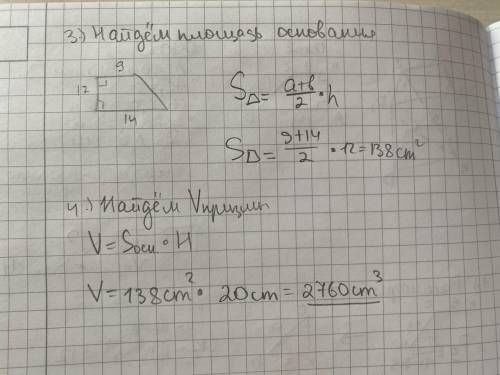 3.) Найдём площадь основания
9
12
14
S⊿ = (a+b)/2 · h
S⊿ = (9+14)/2 · 12 = 138 cm²
4.) Найдём Vпризмы
V = Sосн · H
V = 138 cm² · 20 cm = 2760 cm³